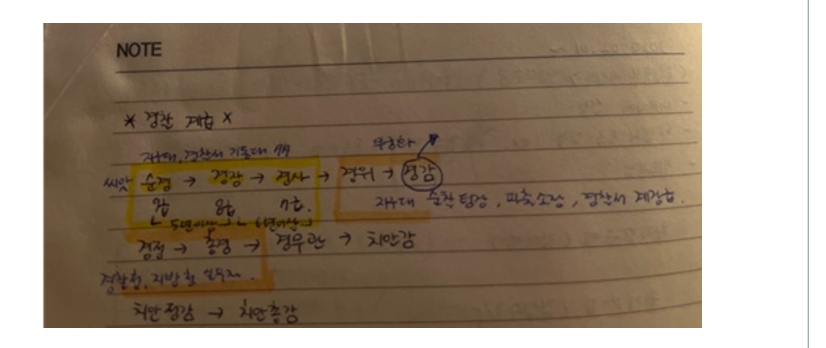 NOTE
* 경찰 계급 *
지구대, 경찰서 기동대
순경 → 경장 → 경사 → 경위 → 경감
9급 8급 7급.
지구대 순찰팀장, 파출소장, 경찰서 계장급.
5년이상 6년이상
경정 → 총경 → 경무관 → 치안감
경찰청, 지방청
치안정감 → 치안총감